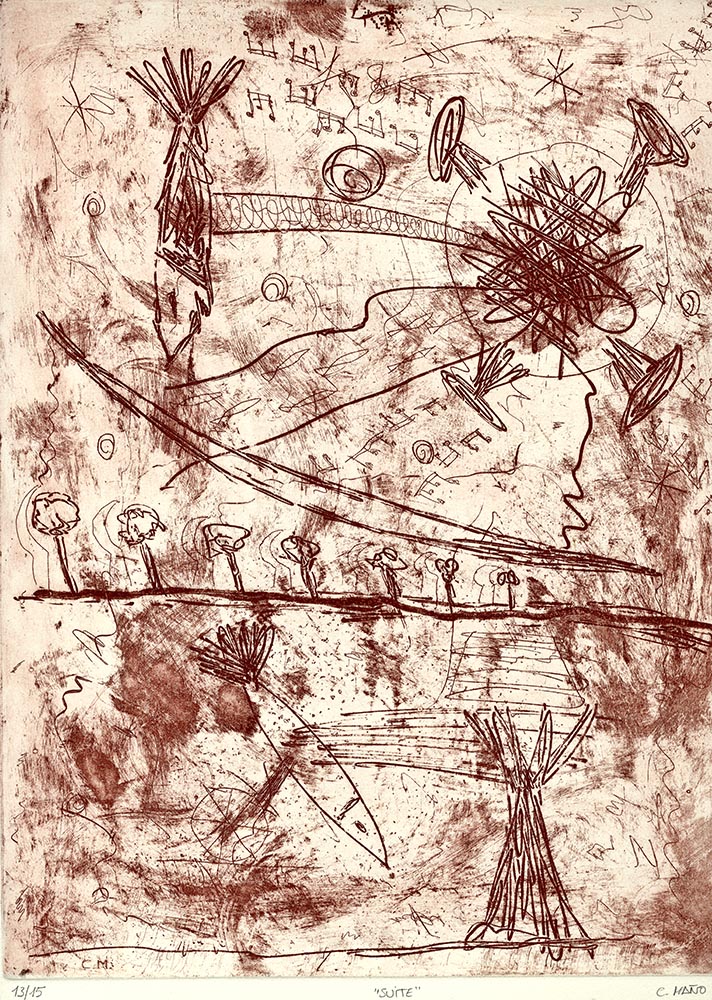 C.M.
13/15 "SUITE" C. MAÑO